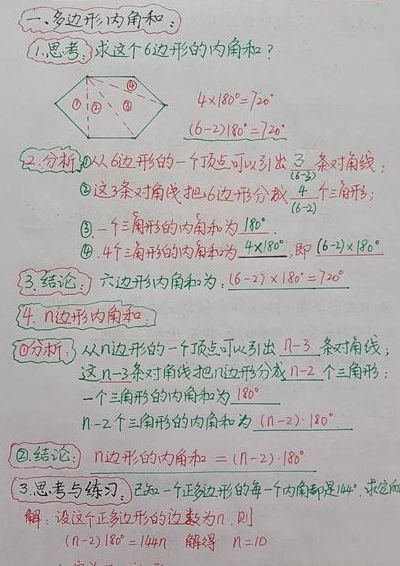 一、多边形内角和:
1.思考:求这个6边形的内角和?
① ② ③ ④
4×180°=720°
(6-2)180°=720°
2.分析①从6边形的一个顶点可以引出 3 条对角线;
(6-3)
②这3条对角线把6边形分成 4 个三角形;
(6-2)
③.一个三角形的内角和为 180°
④.4个三角形的内角和为 4×180°,即 (6-2)×180°
3.结论:六边形内角和为:(6-2)×180°=720°
4.n边形内角和:
①分析:从n边形的一个顶点可以引出 n-3 条对角线;
这 n-3条对角线把n边形分成 n-2 个三角形;
一个三角形的内角和为 180°
n-2个三角形的内角和为 (n-2)·180°
②.结论: n边形的内角和 =(n-2)·180°
3.思考与练习:已知一个正多边形的每一个内角都是144°,求它的
解:设这个正多边形的边数为n,则
(n-2)180°=144n 解得 n=10